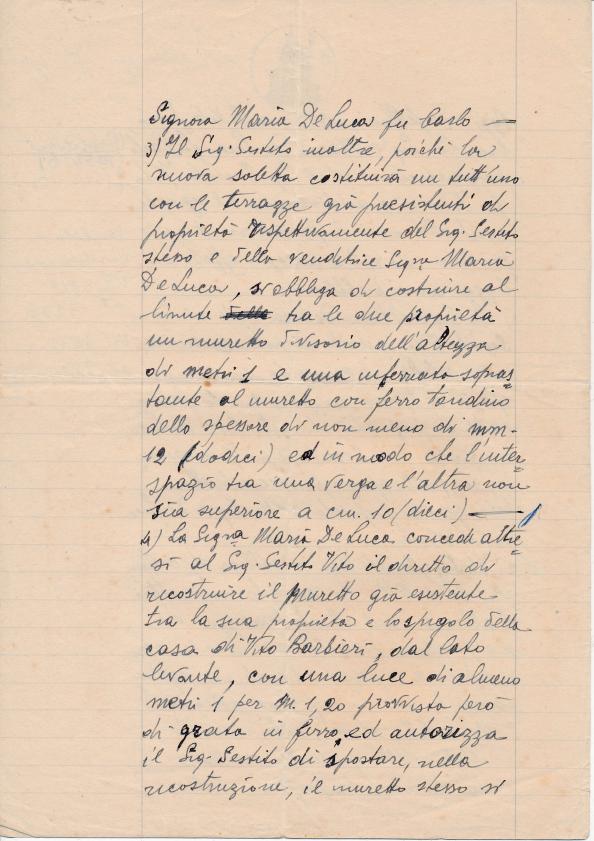 Signora Maria De Luca fu Carlo —
3) Il Sig. Sestito inoltre, poiché la
nuova soletta costituirà un tutt'uno
con le terrazze già preesistenti di
proprietà rispettivamente del Sig. Sestito
stesso e della venditrice Sigra Maria
De Luca, si obbliga di costruire al
limite delle tra le due proprietà
un muretto divisorio dell'altezza
di metri 1 e una inferriata sopras=
tante al muretto con ferro tondino
dello spessore di non meno di mm-
12 (dodici) ed in modo che l'inter=
spazio tra una verga e l'altra non
sia superiore a cm. 10 (dieci) —
4) La Sigra Maria De Luca concede altre=
sì al Sig. Sestito Vito il diritto di
ricostruire il muretto già esistente
tra la sua proprietà e lo spigolo della
casa di Vito Barbieri, dal lato
levante, con una luce di almeno
metri 1 per m 1,20 provvista però
di grata in ferro, ed autorizza
il Sig. Sestito di spostare, nella
ricostruzione, il muretto stesso si